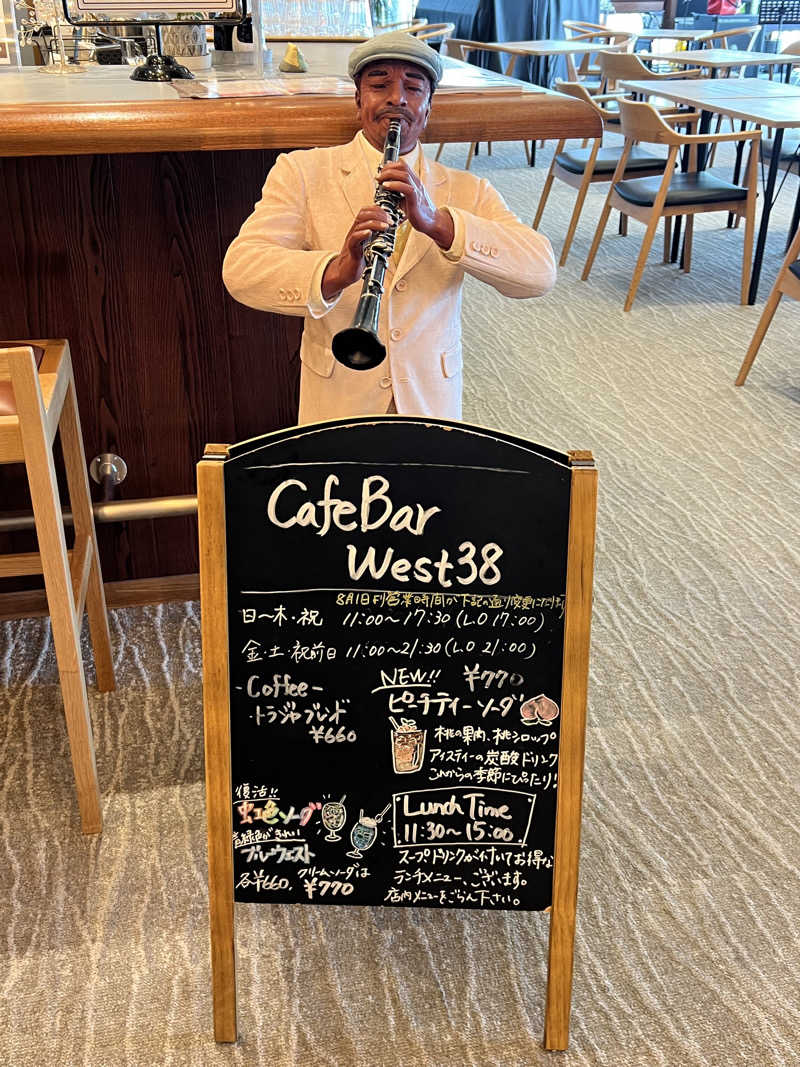 CafeBar
West38
8月1日より営業時間が下記の通り変更になります
日〜木・祝 11:00〜17:30(L.O 17:00)
金・土・祝前日 11:00〜21:30(L.O 21:00)
-Coffee-
・トラジャブレンド
¥660
NEW!! ¥770
ピーチティーソーダ
桃の果肉、桃シロップ
アイスティーの炭酸ドリンク
これからの季節にぴったり!
復活!!
虹色ソーダ
青緑色がきれい
ブルーウェスト
各¥660, クリームソーダは
¥770
Lunch Time
11:30〜15:00
スープドリンクが付いてお得な
ランチメニュー、ございます。
店内メニューをごらん下さい。